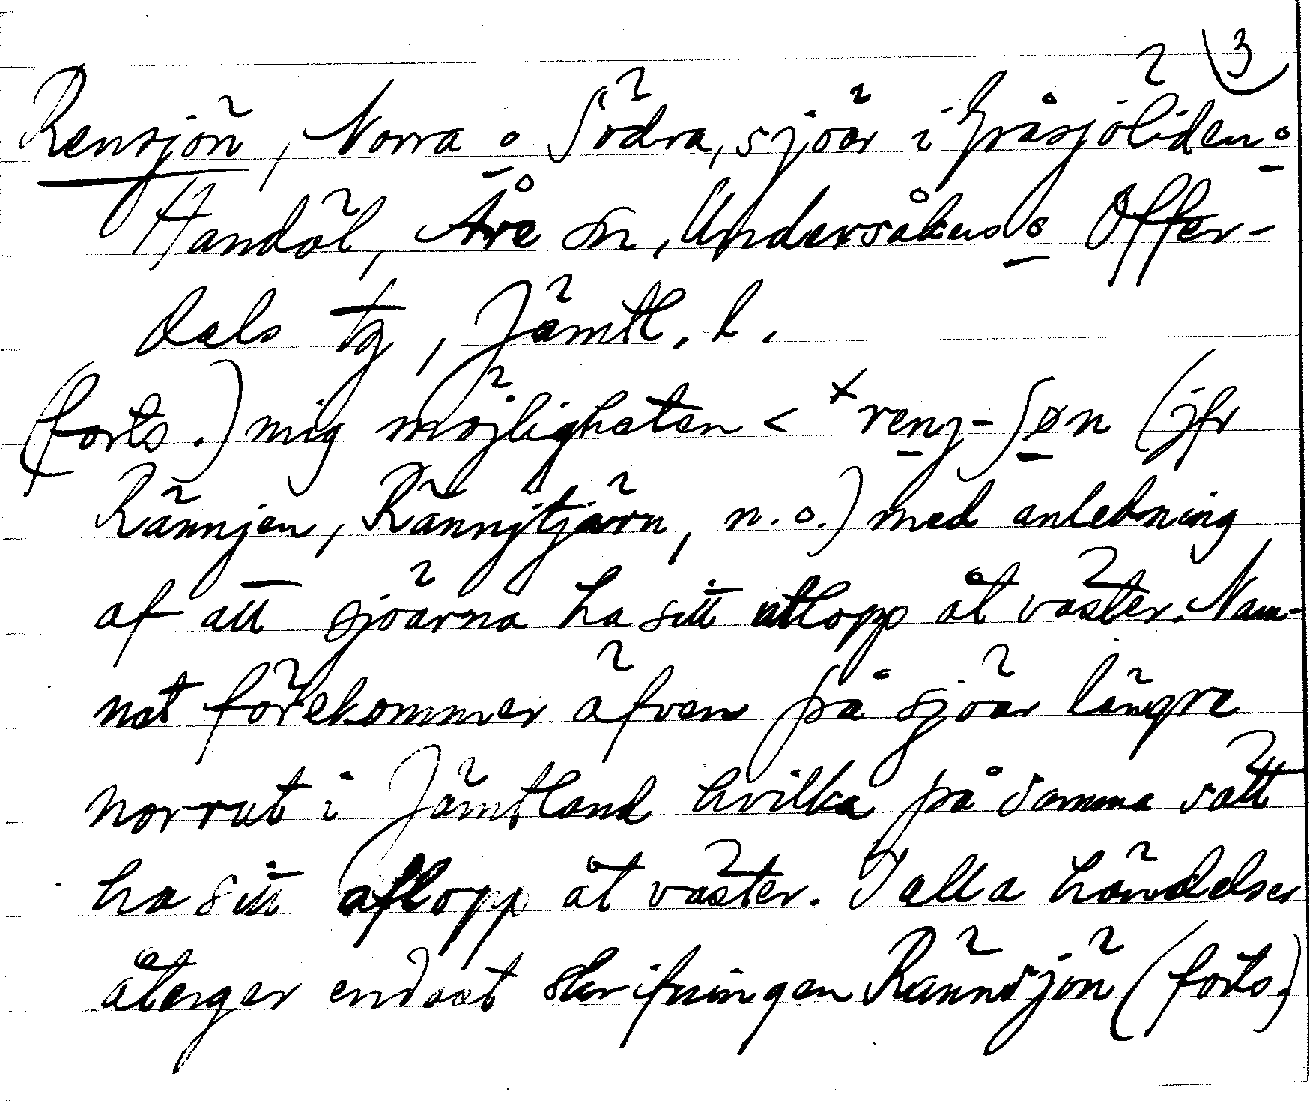 3)
Rensjön, Norra o Södra, sjöar i Gråsjöliden o
Handöl, Åre sn, Undersåkers o Offer-
dals tg, Jämtl. l.
(forts.) mig möjligheten < ˣrenj-ʃøn (jfr
Rännjen, Rännjtjärn, n.o.) med anledning
af att sjöarna ha sitt utlopp åt väster. Nam-
net förekommer äfven på sjöar längre
norrut i Jämtland hvilka på samma sätt
ha sitt aflopp åt väster. I alla händelser
återger endast skrifningen Rännsjön (forts.)